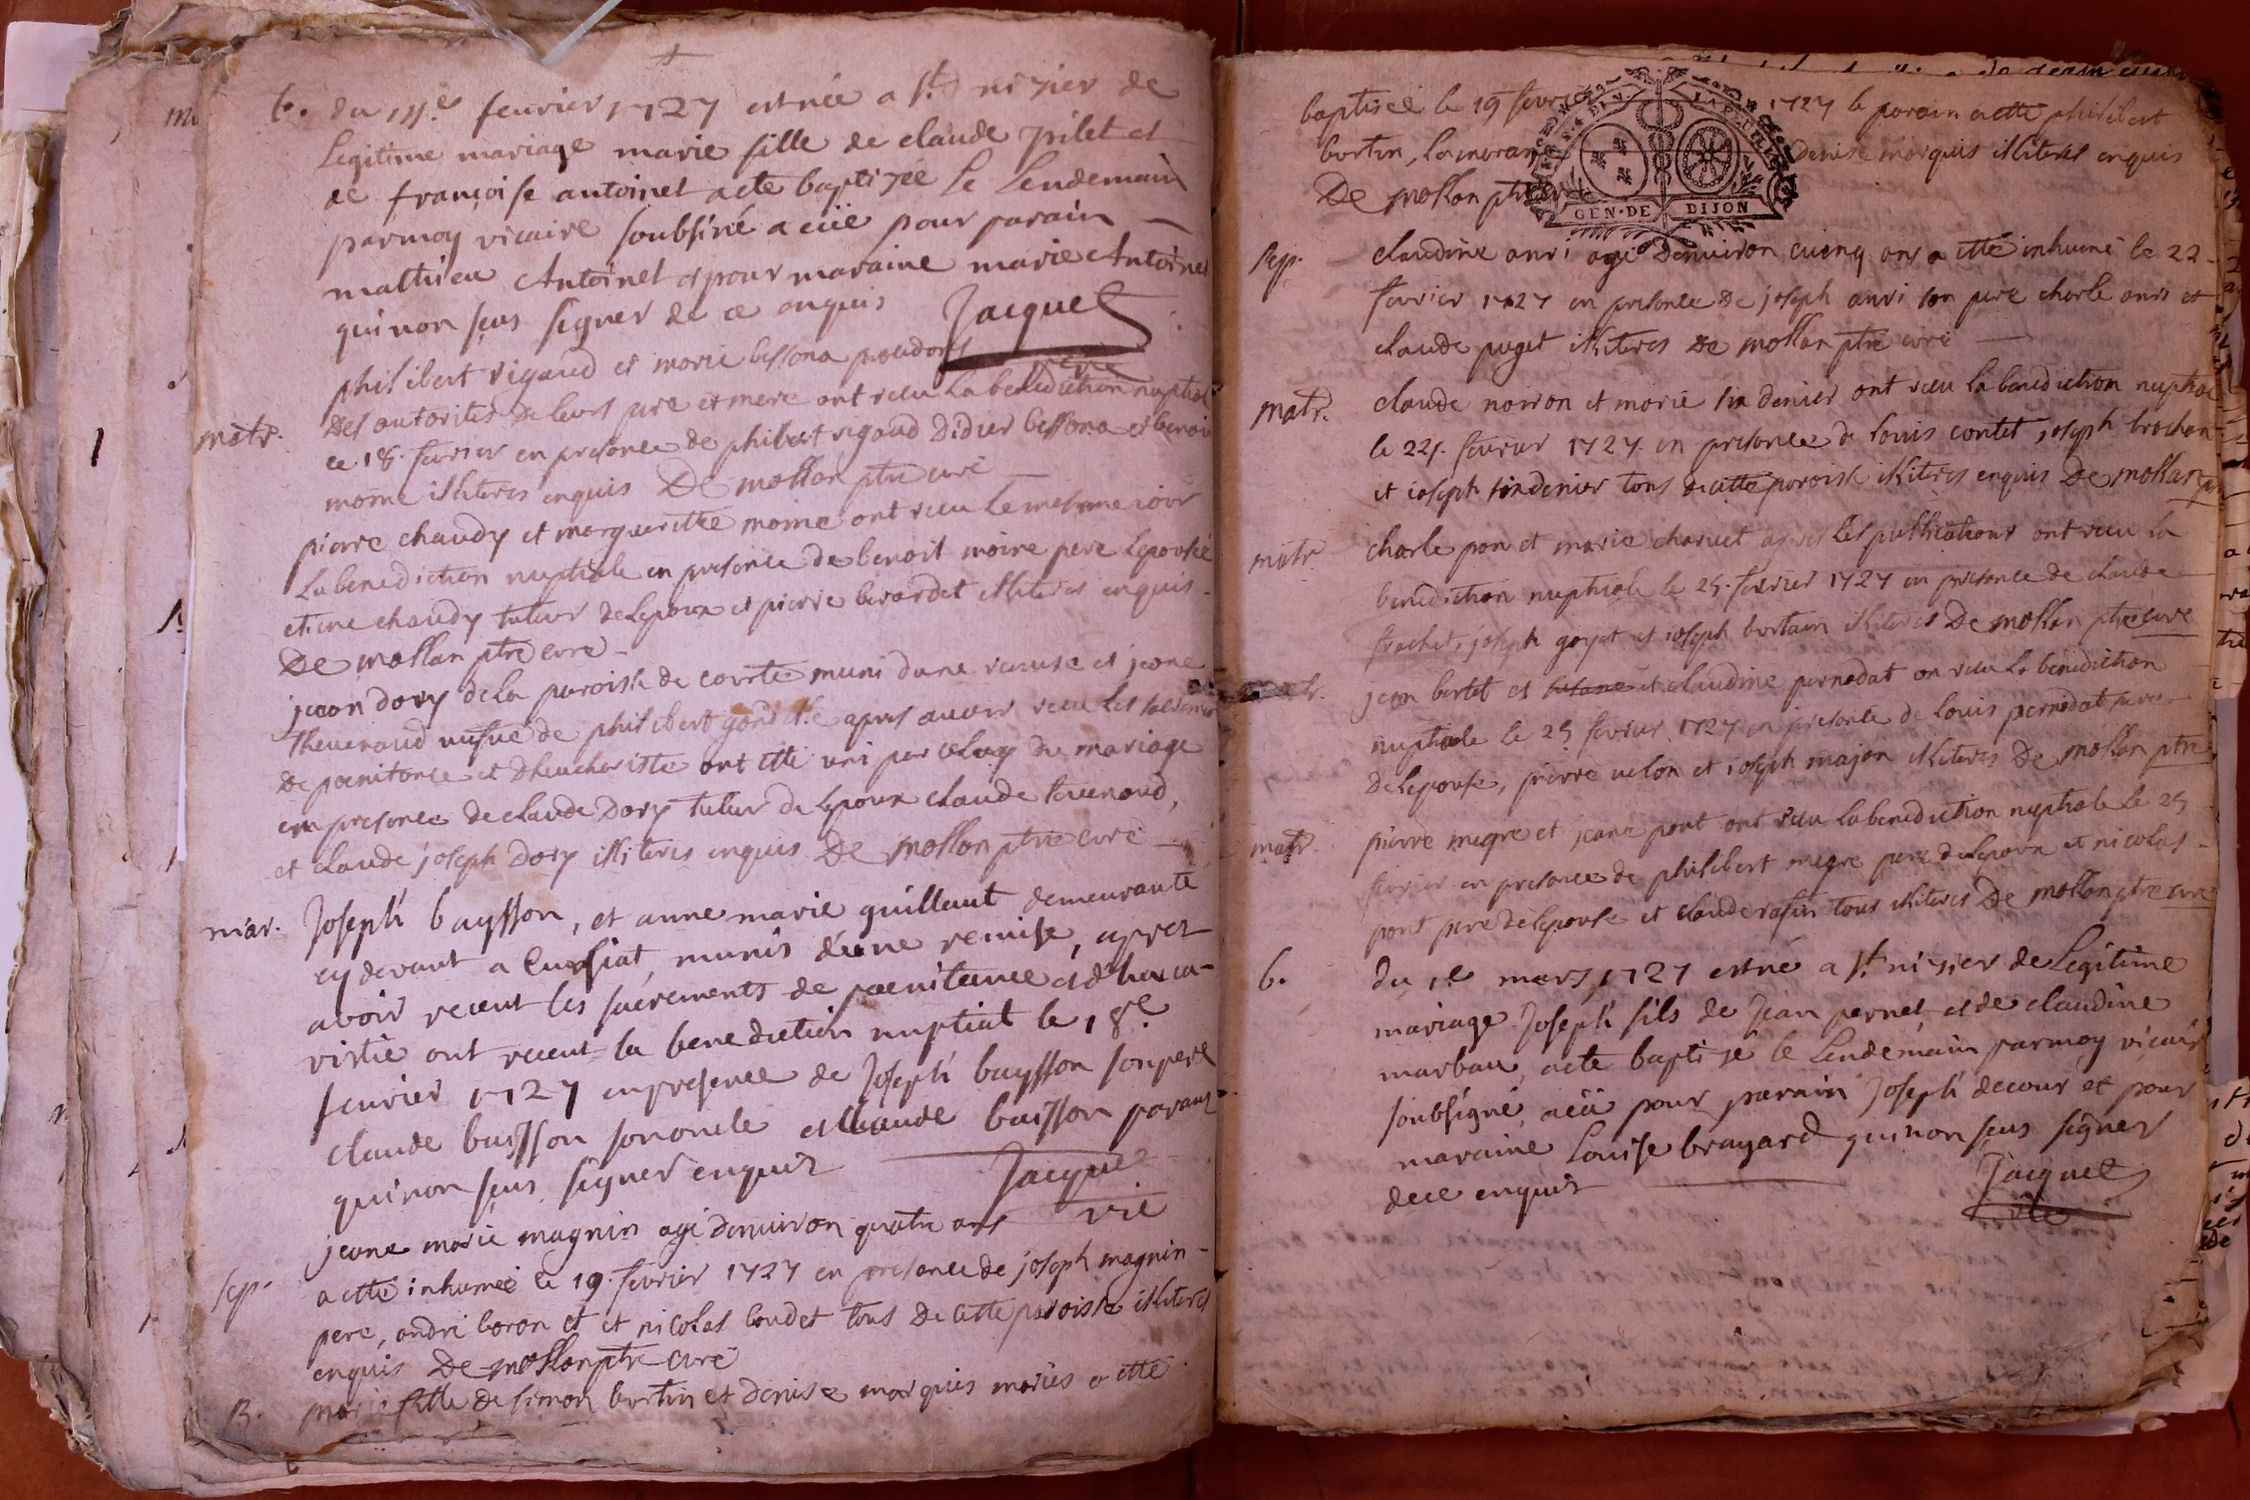 b. du 15e. feurier 1727 est née a St. nizier de
Legitime mariage marie fille de claude pilet et
de françoise antoinet a ete baptizée Le Lendemain
par moy vicaire soubsiné a eüe pour parain
mathieu Antoinet et pour maraine marie Antoinet
qui non seus signer de ce enquis Jacquet
vic
philibert rigaud et marie bessona
des autorites de leurs pere et mere ont receu La benediction nuptial
matr. ce 18. fevrier en presence de philibert rigaud Didier bessona et benoit
mome illiteres enquis De mollan ptre curé
pierre chaudy et margueritte mome ont receu Le mesme iour
La benediction nuptiale en presence de benoit moine pere Lepousée
etiene chaudy tuteur de Lepoux et pierre berardet illiteres enquis
De mollan ptre curé
jean dory de la paroisse de courte muni dune remise et jeane
Theuenaud de philibert apres auoir receu les sacremens
De poenitence et Dheucharistie ont etté uni par celuy du mariage
en presence de claude Dory tuteur de Lepoux claude teuenaud,
et claude joseph Dory illiteres enquis De mollan ptre curé
mar. Joseph buysson, et anne marie guillaut demeurante
cy devant a Cuisiat, munis d'une remise, aprez
avoir receut les sacrements de poenitence et d'heuca-
ristie ont receut la benediction nuptial le 18e.
feurier 1727 en presence de Joseph buysson son pere
claude buisson son oncle et claude buisson parans
qui non seus signer enquis Jacquet
vic
jeane marie magnin agé denuiron quatre ans
sep. a etté inhumeé le 19. fevrier 1727 en presence de joseph magnin
pere, andré boron et et nicolas boudet tous De cette paroisse illiteres
enquis De mollan ptre curé
B. marie fille de simon burtin et denise marquis mariés a etté
baptiseé le 19 fevrier 1727 le parain a etté philibert
burtin, la marain denise marquis illiteres enquis
De mollan ptre
GEN·DE DIJON
sep. claudine anri agé Denuiron cuinq ans a etté inhumé le 22
fevrier 1727 en presence De joseph anri son pere charle anri et
claude puget illiteres De mollan ptre curé
matr. claude noiron et marie denier ont receu la benediction nuptiale
le 25. fevrier 1727. en presence de louis contet, joseph brochan
et ioseph denier tous de cette paroisse illiteres enquis De mollan ptr
matr charle pon et marie charuet apres les publications ont receu la
benediction nuptiale le 25. fevrier 1727 en presence de claude
frachet, joseph goyat et ioseph burtain illiteres De mollan ptre curé
jean bertet et et claudine pernodat on receu la benediction
nuptiale le 25 fevrier 1727 en presence de louis pernodat pere
De Lepouse, pierre uelon et ioseph majon illiteres De mollan ptre
matr. pierre megre et jeane pont ont receu la benediction nuptiale le 25
fevrier en presence de philibert megre pere de Lepoux et nicolas
pont pere de Lepouse et claude rafin tous illiteres De mollan ptre curé
b. du 1e mars 1727 est né a St. nizier de Legitime
mariage Joseph fils de Jean pernet et de claudine
marbau, a ete baptizé le Lendemain par moy vicaire
soubsigné, a eü pour parain Joseph decour et pour
maraine Louise brayard qui non seus signer
de ce enquis Jacquet
vic